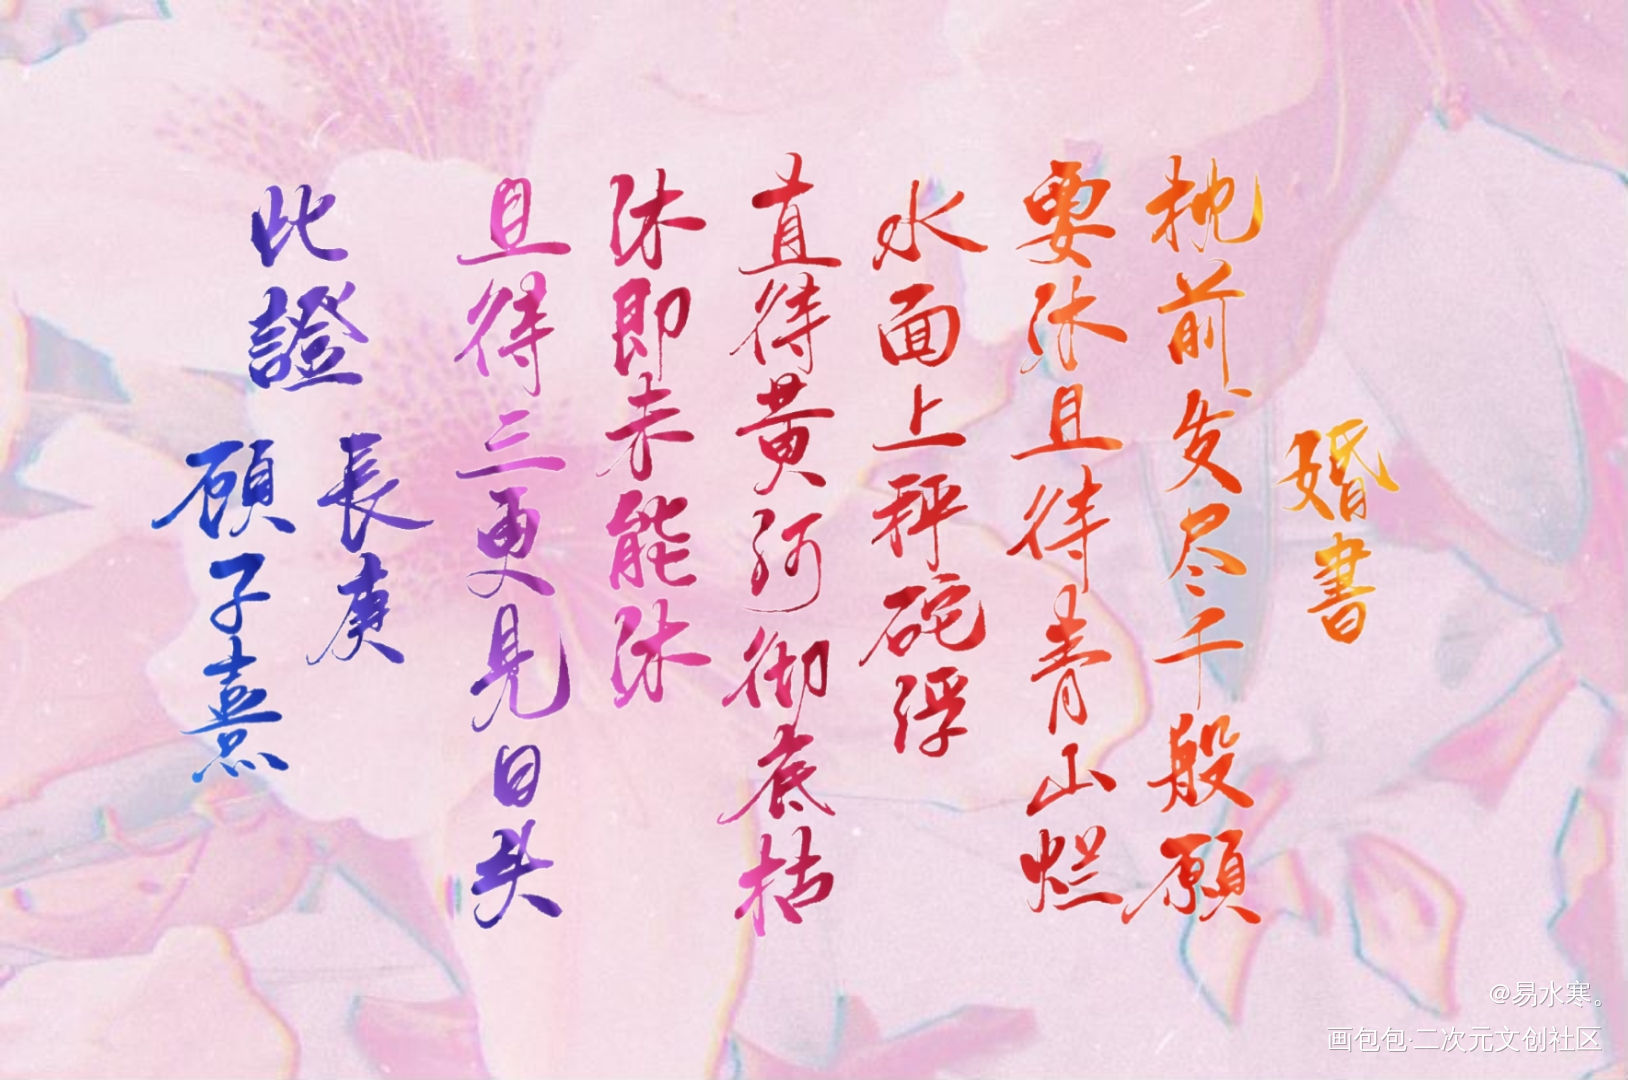 婚書
枕前发尽千般願
要休且待青山烂
水面上秤砣浮
直待黄河彻底枯
休即未能休
且待三更見日头
此證
長庚
顾子熹
@易水寒。
画包包·二次元文创社区